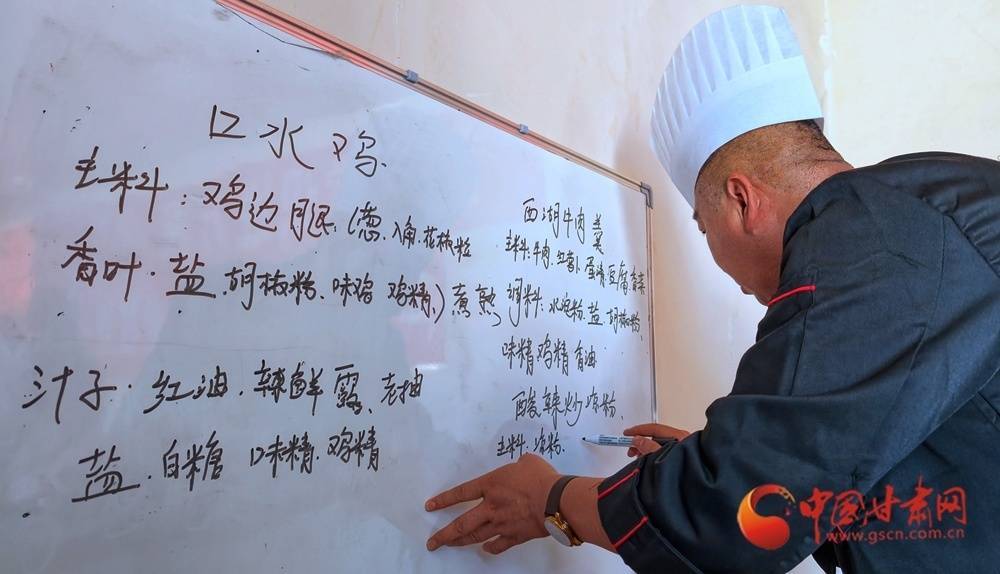 口水鸡
主料：鸡边腿（葱.八角.花椒粒
香叶.盐.胡椒粉.味鸡 鸡精.）煮熟
汁子.红油.辣鲜露、老抽
盐.白糖 口味精.鸡精
西湖牛肉羹
主料：牛肉.红萝卜.蛋清.豆腐.香菜
调料：水淀粉.盐.胡椒粉.
味精 鸡精 香油
酸辣炒凉粉.
主料：凉粉.
中国甘肃网
www.gscn.com.cn